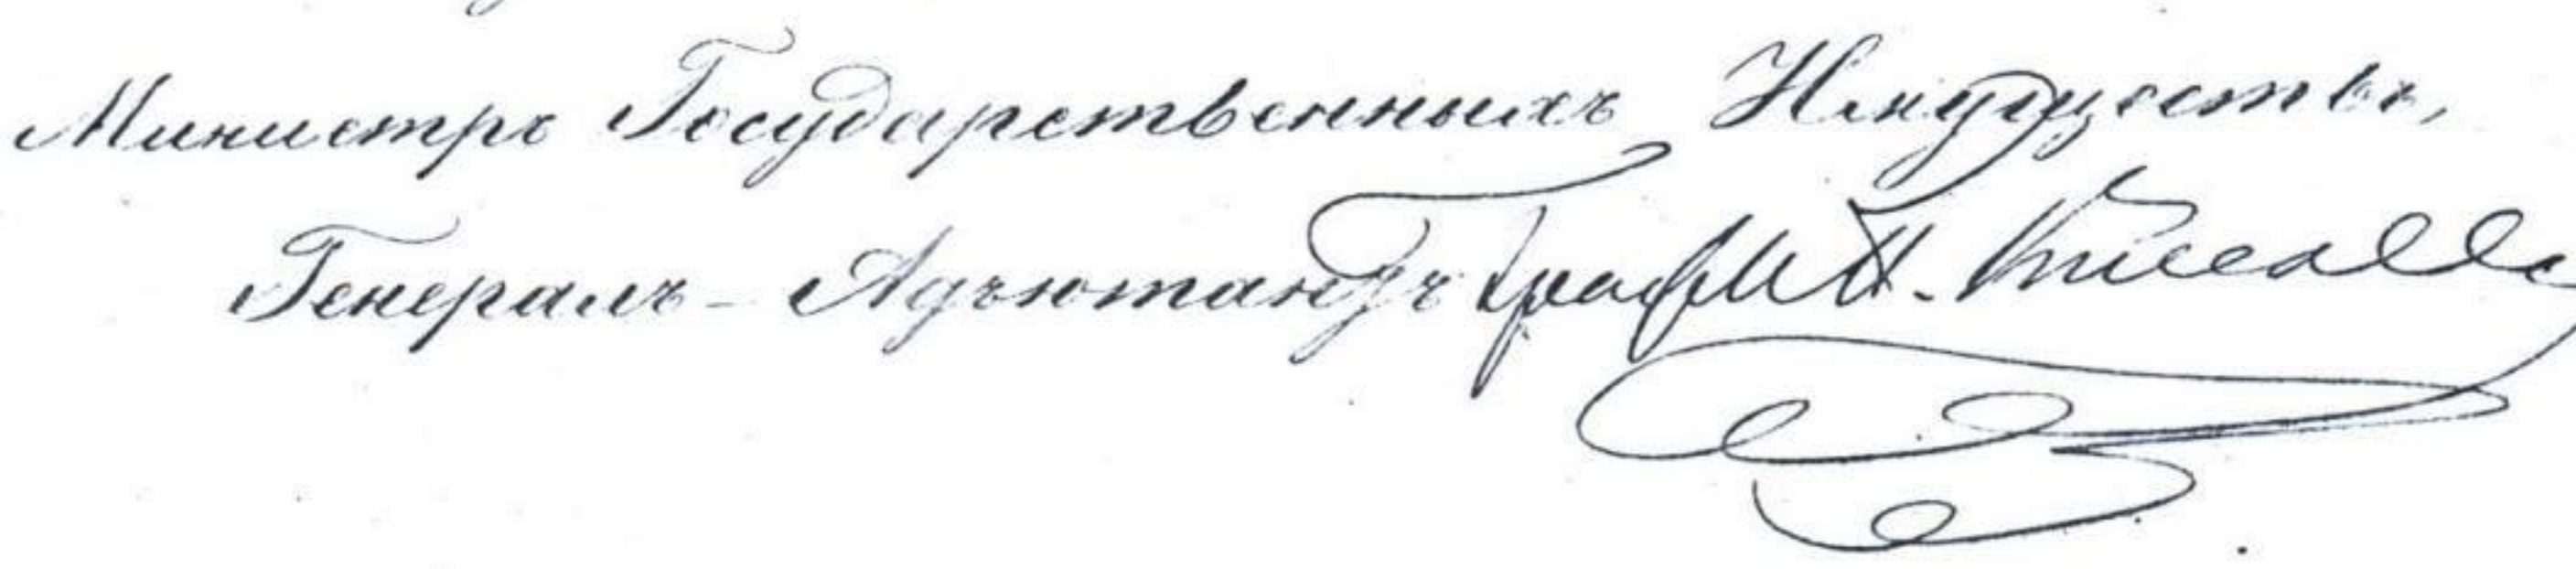 Министръ Государственныхъ Имуществъ,
Генералъ-Адъютантъ Графъ П. Киселевъ